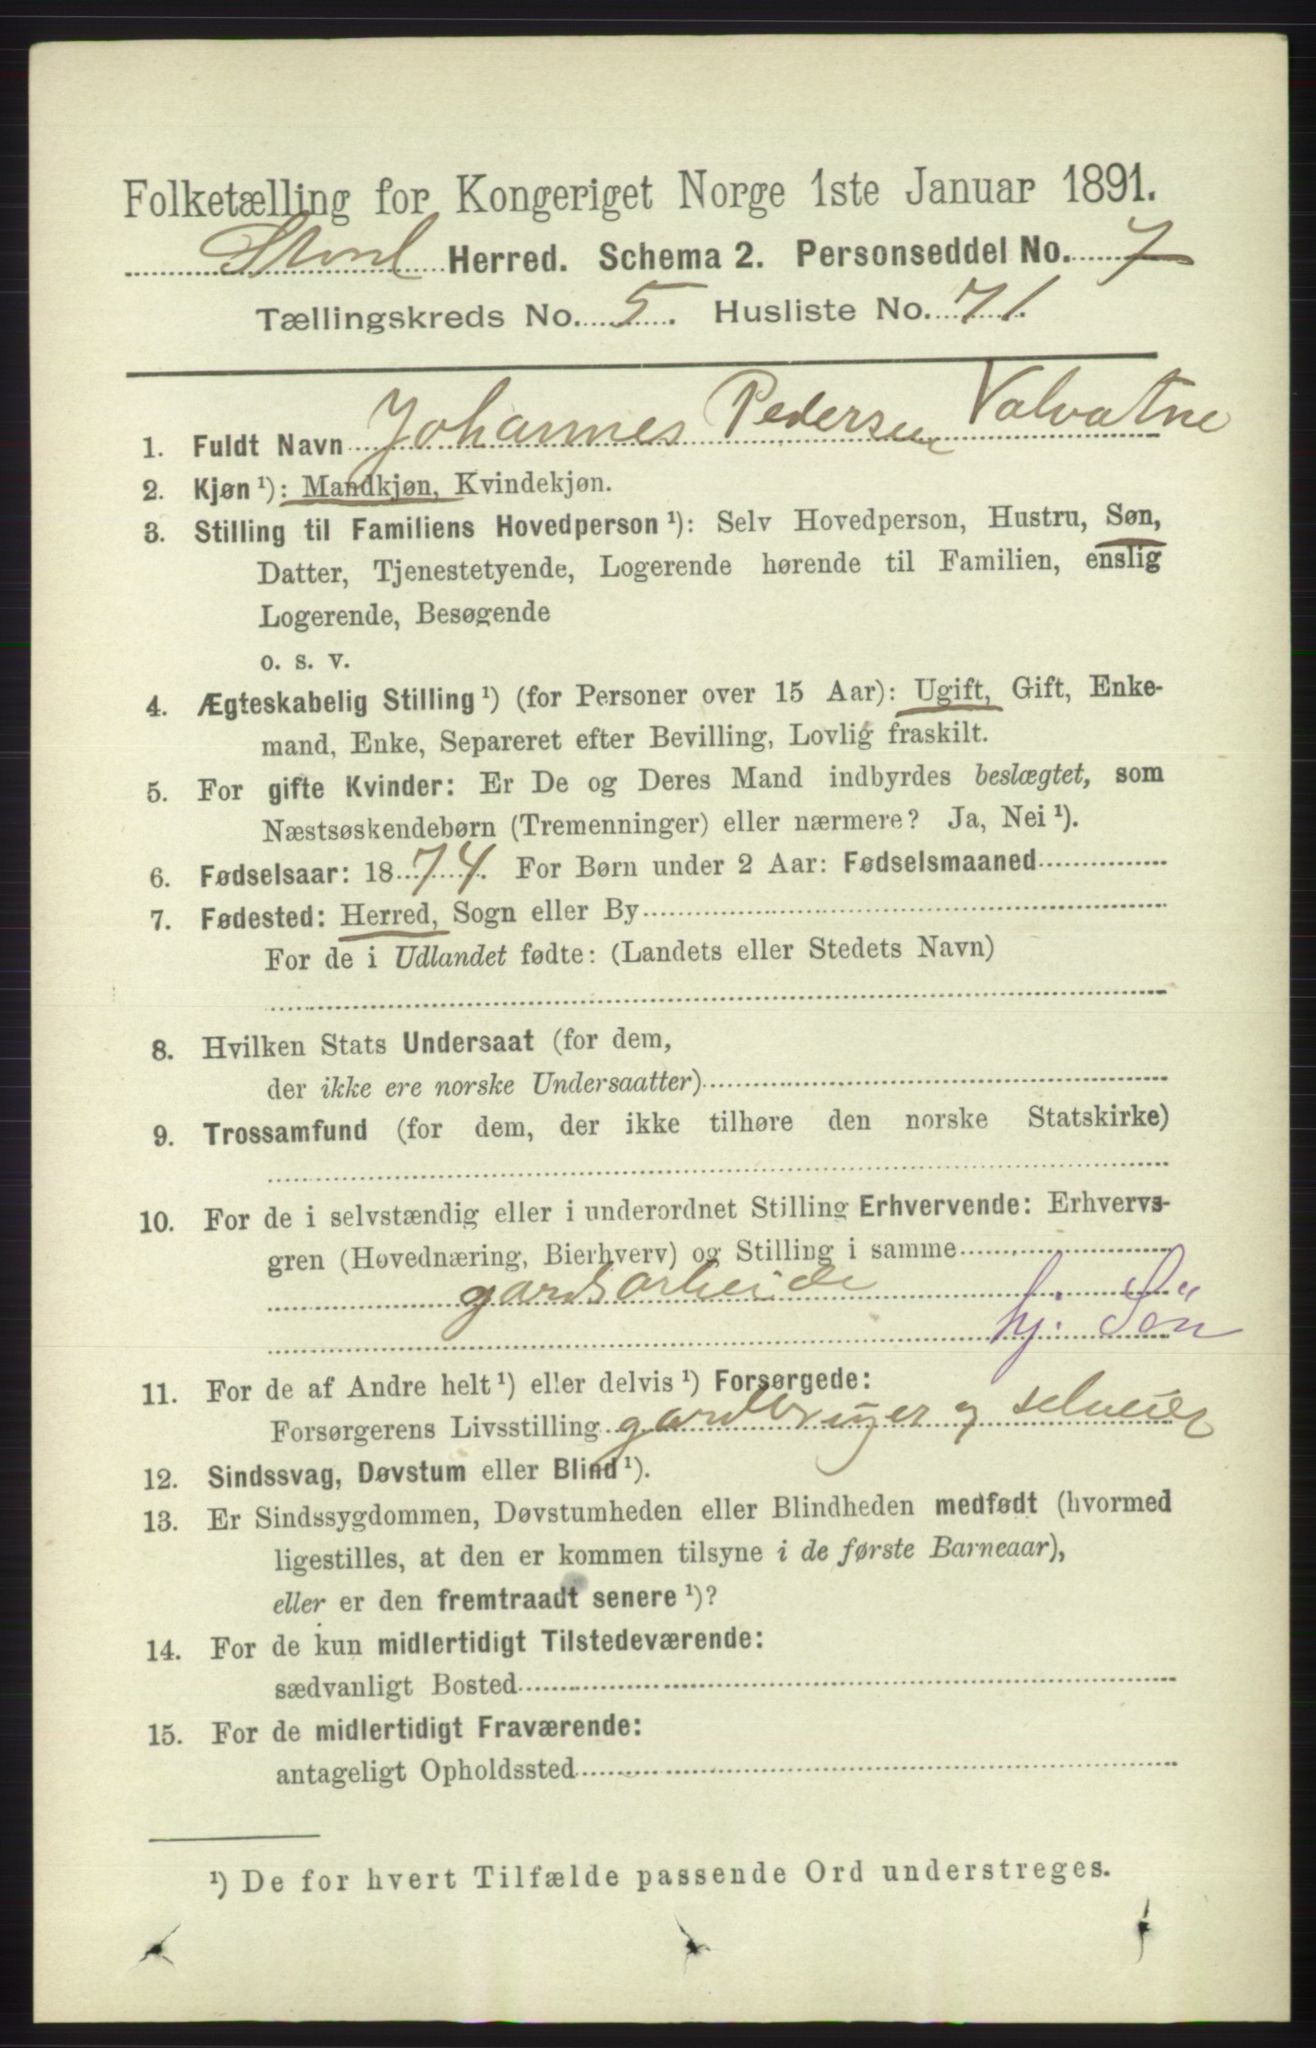 Folketælling for Kongeriget Norge 1ste Januar 1891.
Stord Herred. Schema 2. Personseddel No. 7
Tællingskreds No. 5. Husliste No. 71.
1. Fuldt Navn Johannes Pedersen Valvatne
2. Kjøn¹): Mandkjøn, Kvindekjøn.
3. Stilling til Familiens Hovedperson¹): Selv Hovedperson, Hustru, Søn,
Datter, Tjenestetyende, Logerende hørende til Familien, enslig
Logerende, Besøgende
o. s. v.
4. Ægteskabelig Stilling¹) (for Personer over 15 Aar): Ugift, Gift, Enke-
mand, Enke, Separeret efter Bevilling, Lovlig fraskilt.
5. For gifte Kvinder: Er De og Deres Mand indbyrdes beslægtet, som
Næstsøskendebørn (Tremenninger) eller nærmere? Ja, Nei¹).
6. Fødselsaar: 1874. For Børn under 2 Aar: Fødselsmaaned
7. Fødested: Herred, Sogn eller By
For de i Udlandet fødte: (Landets eller Stedets Navn)
8. Hvilken Stats Undersaat (for dem,
der ikke ere norske Undersaatter)
9. Trossamfund (for dem, der ikke tilhøre den norske Statskirke)
10. For de i selvstændig eller i underordnet Stilling Erhvervende: Erhvervs-
gren (Hovednæring, Bierhverv) og Stilling i samme
gardsarbeide
hj. Sön
11. For de af Andre helt¹) eller delvis¹) Forsørgede:
Forsørgerens Livsstilling gardbruger og selveier
12. Sindssvag, Døvstum eller Blind¹).
13. Er Sindssygdommen, Døvstumheden eller Blindheden medfødt (hvormed
ligestilles, at den er kommen tilsyne i de første Barneaar),
eller er den fremtraadt senere¹)?
14. For de kun midlertidigt Tilstedeværende:
sædvanligt Bosted
15. For de midlertidigt Fraværende:
antageligt Opholdssted
¹) De for hvert Tilfælde passende Ord understreges.